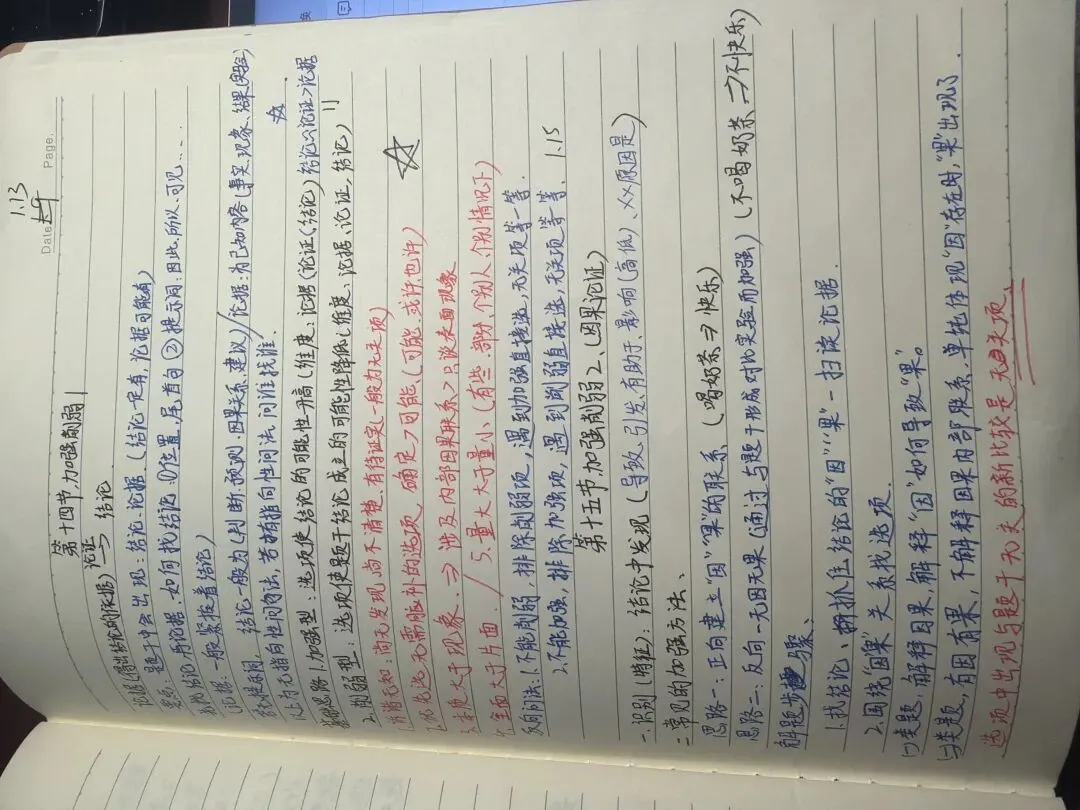 1.13
Date Page.
第十四节,加强削弱1
论据(得出结论的依据) 论证→ 结论
题干中会出现:结论、论据。(结论一定有,论据可能有)
如何找结论 ①位置,尾首句 ②提示词:因此、所以、可见....
(论据一般紧挨着结论)
结论一般为(判断、预测、因果关系、建议)/论据:为已知内容(事实、现象、结果(实验)
以上为无指向性问法,若有指向性问法,问谁找谁.
1.加强型:选项使结论的可能性升高(维度:论据(论证(结论) 结论>论证>论据
2.削弱型:选项使题干结论成立的可能性降低(维度、论据、论证,结论)
1.诉诸无知:尚无发现,尚不清楚,有待证实(一般为无关项)
2.优先选无需脑补的选项 确定>可能、(可能,或许,也许)
3.本质大于现象.⇒涉及内部因果联系>只谈表面现象
4.全面大于片面./5.量大大于量小、(有些,部分,个别人,个别情况下)
反向问法:1.不能削弱,排除削弱项,遇到加强直接选,无关项等一等.
2.不能加强,排除加强项,遇到削弱直接选,无关项等一等、
1.15
第十五节,加强削弱2、(因果论证)
一.识别(特征):结论中发现(导致、引发、有助于、影响(高低)、××原因是)
二.常见的加强方法、
思路一:正向建立"因""果"的联系、(喝奶茶⇒快乐)
思路二:反向一无因无果(通过与题干形成对比实验而加强)(不喝奶茶⇒不快乐)
解题步骤、
1.找结论、抓住结论的"因""果"-扫读论据.
2.围绕"因""果"关系找选项.
类题,解释因果,解释"因"如何导致"果"。
与类题,有因有果,不解释因果内部联系.单纯体现"因"存在时,"果"出现了.
选项中出现与题干无关的新比较是无关项、